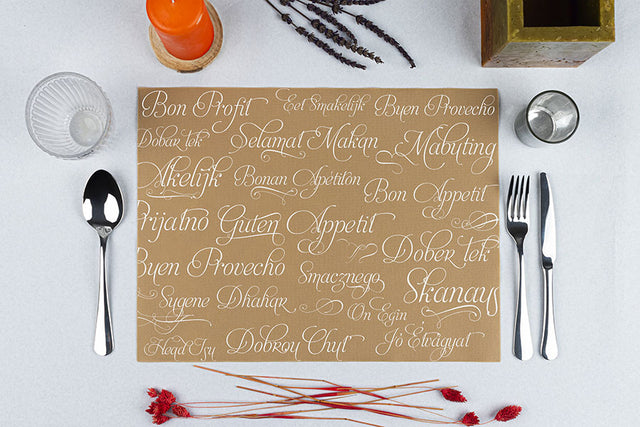 Bon Profit Eet Smakelijk Buen Provecho
Dobar tek Selamat Makan Mabuting
Akelijk Bonan Apétiton Bon Appetit
Prijatno Guten Appetit Dober tek
Buen Provecho Smacznego Skanaus
Sugene Dhahar On Egin
Dobrou Chut Jó Étvágyat